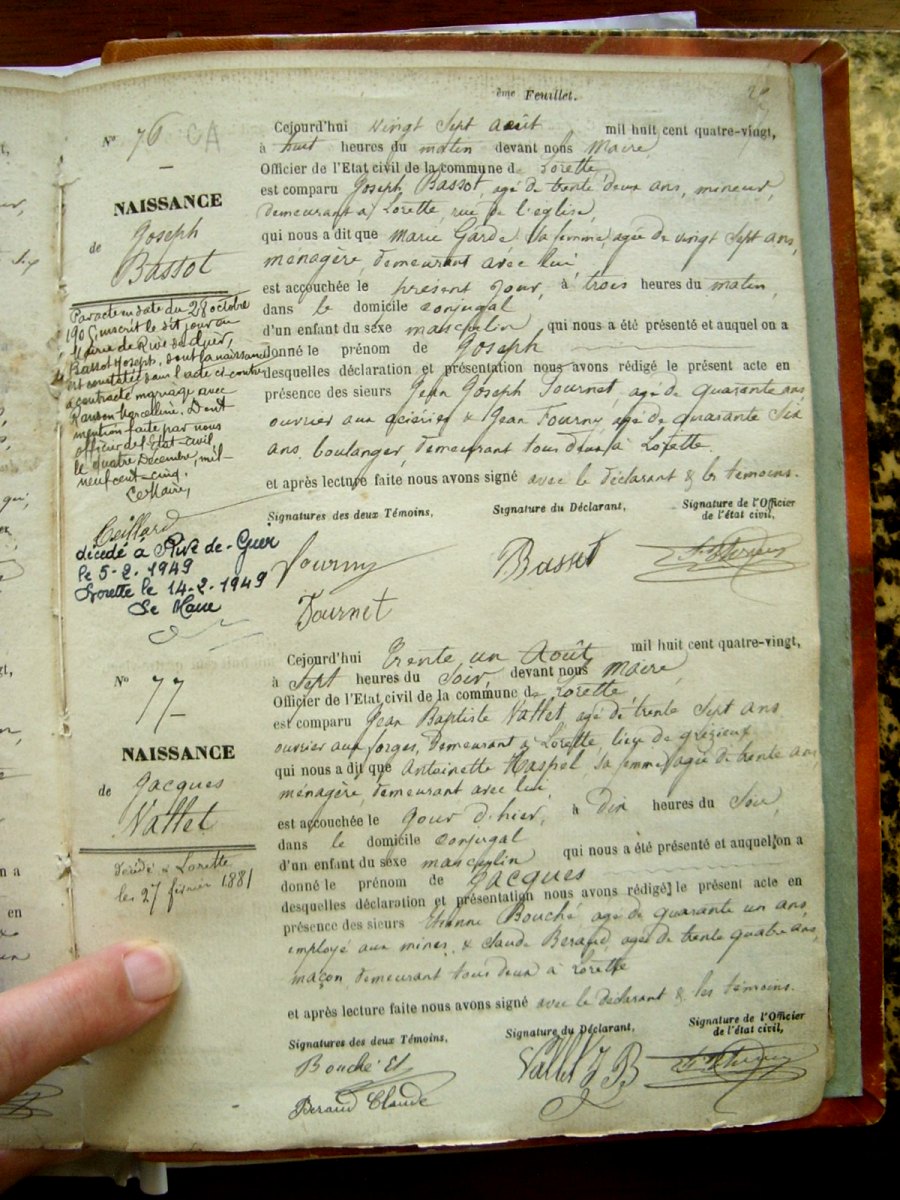 ème Feuillet.
29
N° 76 CA
NAISSANCE
de Joseph
Bassot
Par acte en date du 28 octobre
1905 inscrit le dit jour en
Mairie de Rive de Gier,
Bassot Joseph, dont la naissance
est constatée dans l'acte ci-contre
a contracté mariage avec
Marcelline. Dont
mention faite par nous
officier de l'Etat-civil,
le quatre Décembre, mil-
neuf cent-cinq.
Le Maire,
décédé à Rive-de-Gier
le 5-2-1949
Lorette le 14-2-1949
Le Maire
Cejourd'hui vingt sept août mil huit cent quatre-vingt,
à huit heures du matin devant nous Maire
Officier de l'Etat civil de la commune de Lorette,
est comparu Joseph Bassot, agé de trente deux ans, mineur,
demeurant à Lorette, rue de l'eglise,
qui nous a dit que Marie Garde sa femme agée de vingt sept ans,
ménagère, demeurant avec lui,
est accouchée le present jour, à trois heures du matin,
dans le domicile conjugal
d'un enfant du sexe masculin qui nous a été présenté et auquel on a
donné le prénom de Joseph
desquelles déclaration et présentation nous avons rédigé le présent acte en
présence des sieurs Jean Joseph Tournet, agé de quarante ans,
ouvrier aux aciéries & Jean Fourny, agé de quarante six
ans, boulanger, demeurant tous deux à Lorette.
et après lecture faite nous avons signé avec le déclarant & les témoins.
Signatures des deux Témoins, Signature du Déclarant, Signature de l'Officier
de l'état civil,
Fourny Bassot
Tournet
N° 77
NAISSANCE
de Jacques
Vallet
Décédé à Lorette
les 27 février 1881
Cejourd'hui trente un Août mil huit cent quatre-vingt,
à Sept heures du Soir, devant nous Maire
Officier de l'Etat civil de la commune de Lorette,
est comparu Jean Baptiste Vallet, agé de trente sept ans
ouvrier aux forges, demeurant à Lorette, lieu de grézieux
qui nous a dit que Antoinette sa femme agée de trente ans,
ménagère, demeurant avec lui,
est accouchée le jour d'hier, à Dix heures du Soir
dans le domicile conjugal
d'un enfant du sexe masculin qui nous a été présenté et auquel on a
donné le prénom de Jacques
desquelles déclaration et présentation nous avons rédigé le présent acte en
présence des sieurs Etienne Bouché agé de quarante un ans,
employé aux mines, & Claude Beraud, agé de trente quatre ans,
maçon, demeurant tous deux à Lorette
et après lecture faite nous avons signé avec le déclarant & les témoins.
Signatures des deux Témoins, Signature du Déclarant, Signature de l'Officier
de l'état civil,
Bouché Et Vallet J B
Beraud Claude